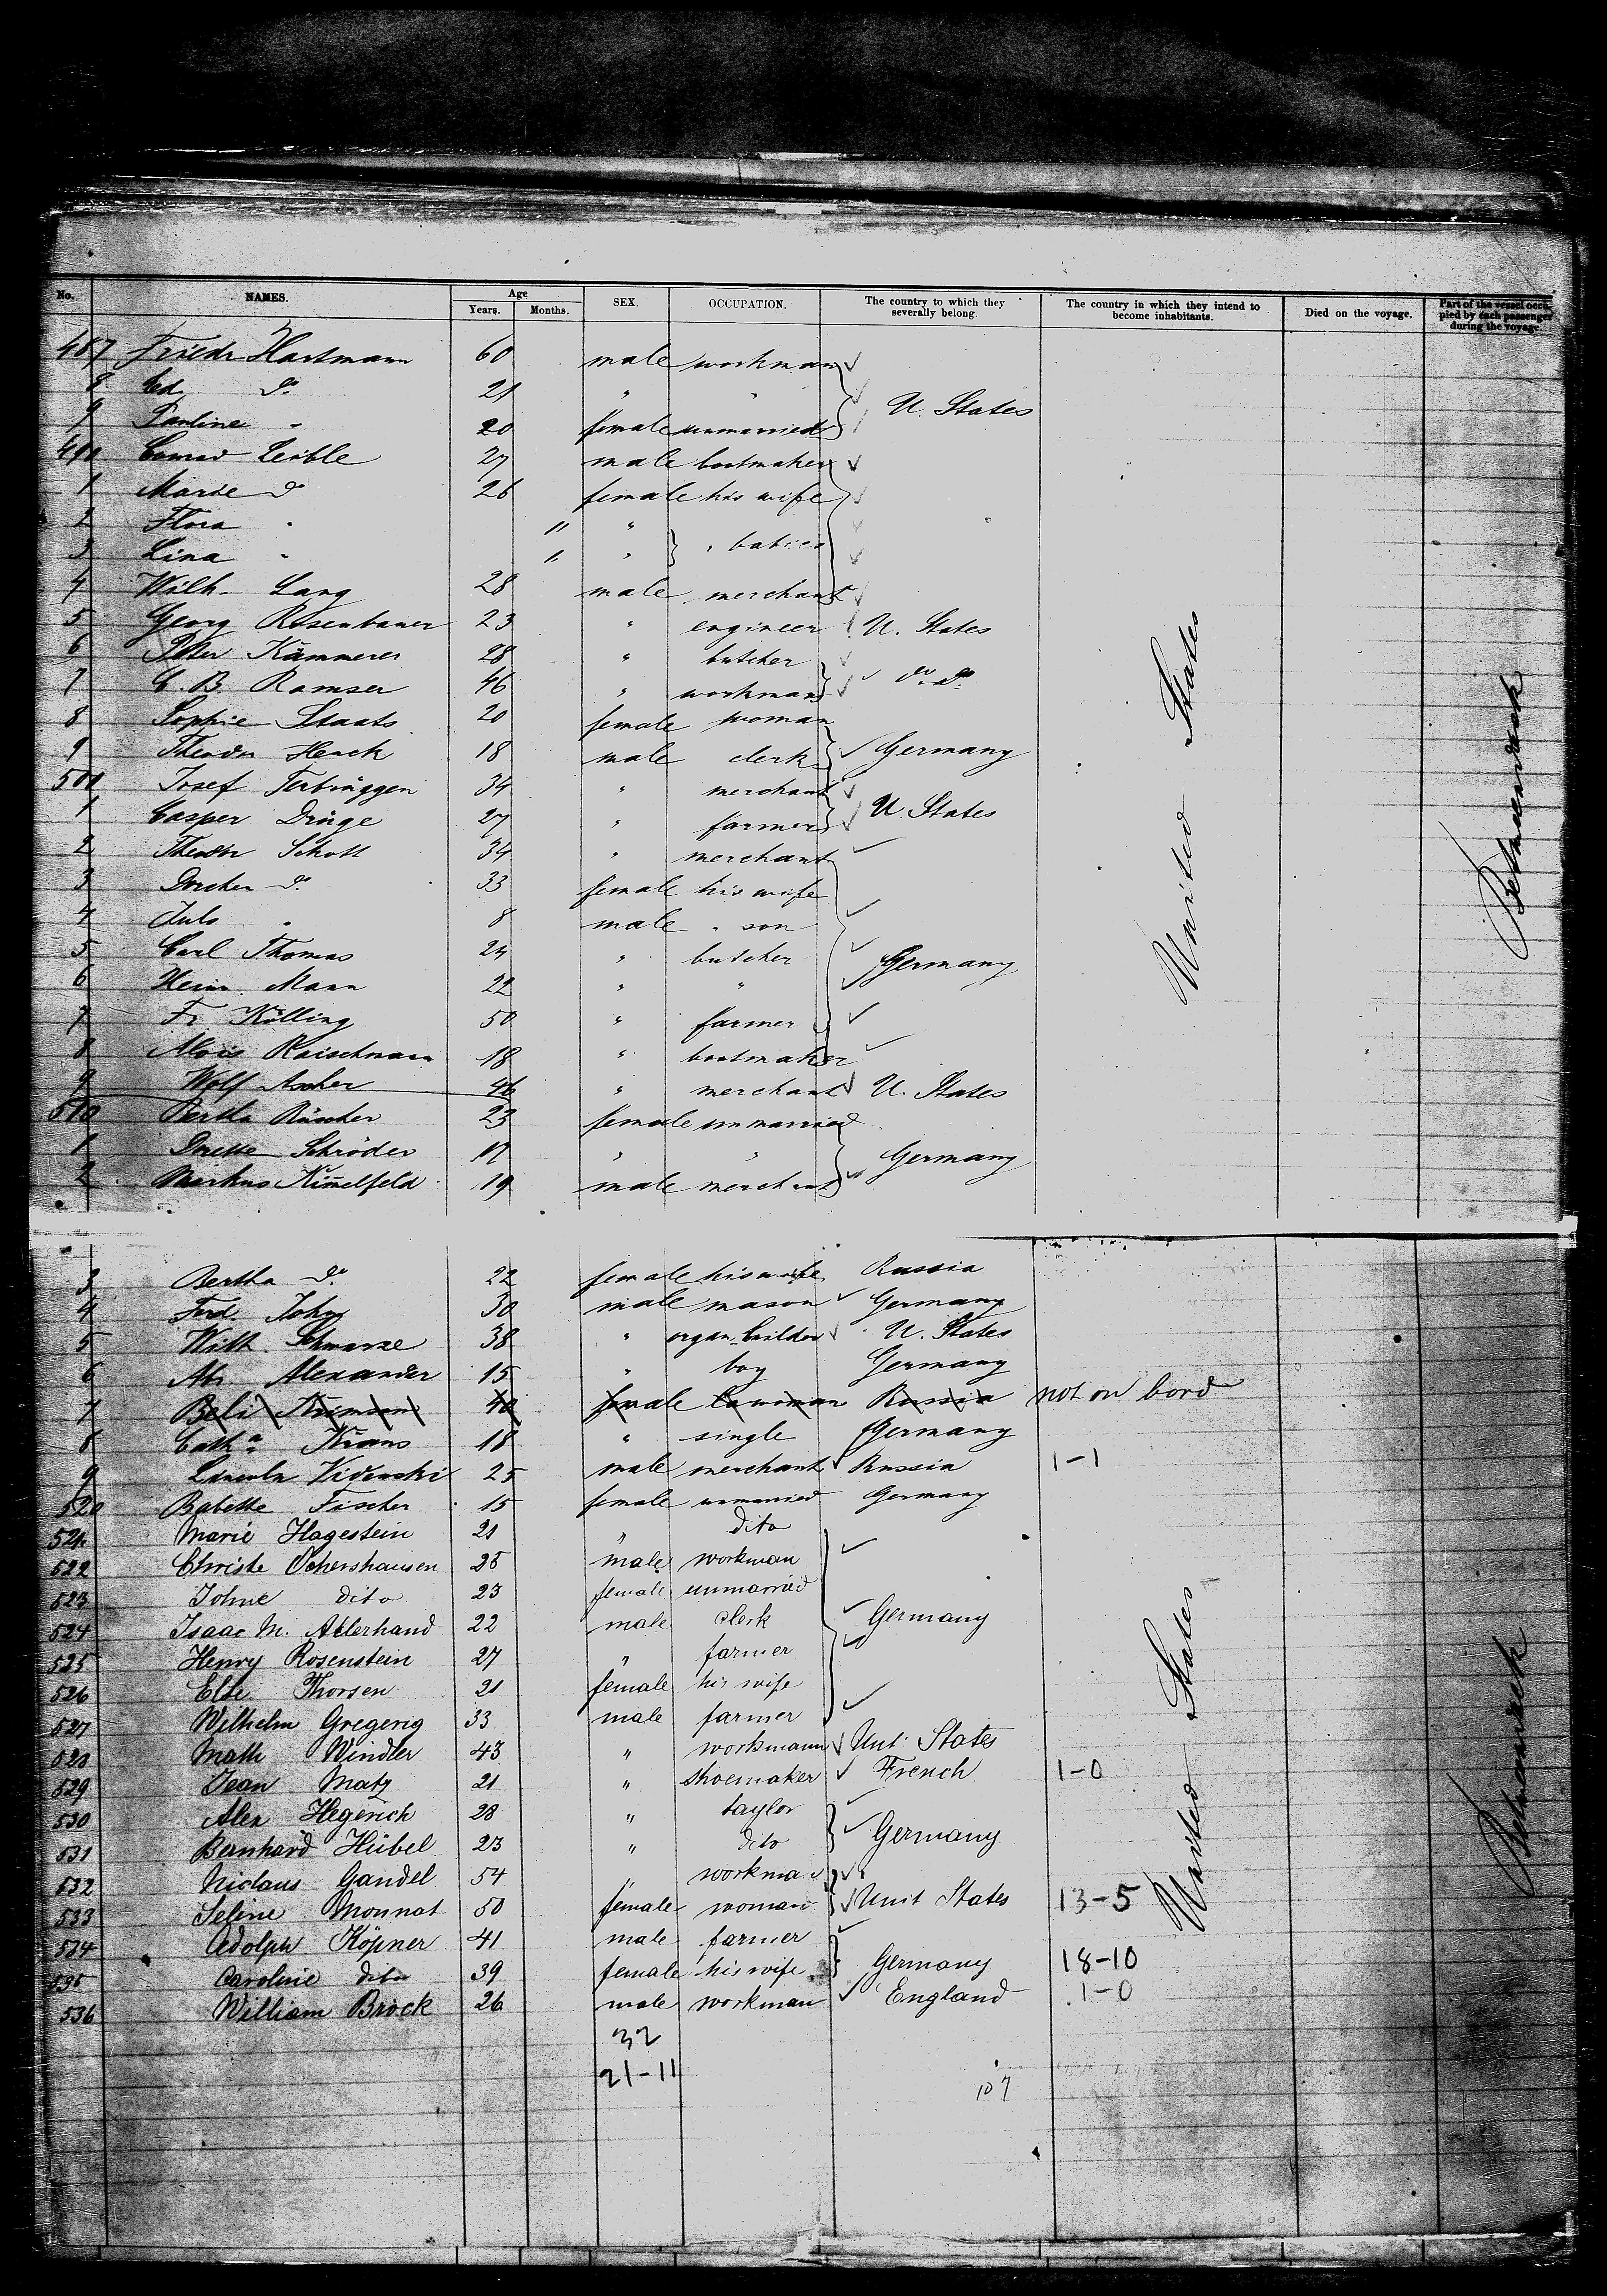 No. NAMES. Age Years. Months. SEX. OCCUPATION. The country to which they severally belong. The country in which they intend to become inhabitants. Died on the voyage. Part of the vessel occupied by each passenger during the voyage.
487 Friedr Hartmann 60 male workman
8 Ed. do 21 " "
9 Pauline " 20 female unmarried U. States
490 Conrad Leible 27 male bootmaker
1 Marie do 26 female his wife
2 Flora " 11 "
3 Lina " 11 " " babies
4 Wilh. Lang 28 male merchant
5 Georg Rosenbauer 23 " engineer U. States
6 Peter Kämmerer 28 " butcher
7 C. B. Ramser 46 " workman do do
8 Sophie Staats 20 female woman
9 Theodor Henck 18 male clerk Germany
500 Josef Terbrüggen 34 " merchant
1 Casper Dröge 27 " farmer U. States
2 Theodor Schott 34 " merchant
3 Dorchen do 33 female his wife
4 Juls " 8 male " son
5 Carl Thomas 24 " butcher Germany
6 Heinr. Mann 22 " "
7 Fr. Kölling 50 " farmer
8 Alois Raischmann 18 " bootmaker
9 Wolf Ascher 46 " merchant U. States
510 Bertha Rüscher 23 female unmarried
1 Dorette Schröder 17 " " Germany
2 Markus Kimelfeld 19 male merchant
United States
Betweendeck
3 Bertha do 22 female his wife Russia
4 Ferd. John 30 male mason Germany
5 Wilh. Schwarze 38 " organ-builder U. States
6 Abr. Alexander 15 " boy Germany
7 40 female woman Russia not on bord
8 Catha Krans 18 " single Germany
9 Videnski 25 male merchant Russia 1-1
520 Babette Fischer 15 female unmarried Germany
521 Marie Hagestein 21 " dito
522 Christe Ockershausen 25 male workman
523 Johne dito 23 female unmarried
524 Isaac M. Allerhand 22 male clerk Germany
525 Henry Rosenstein 27 " farmer
526 Else Thorsen 21 female his wife
527 Wilhelm Gregerig 33 male farmer
528 Math Windler 43 " workmann Unt: States
529 Jean Matz 21 " shoemaker French 1-0
530 Alex Hegerich 28 " taylor
531 Bernhard Hübel 23 " dito Germany
532 Niclaus Gandel 54 " workman
533 Seline Monnat 50 female woman Unit States 13-5
534 Adolph Köpner 41 male farmer
535 Caroline dito 39 female his wife Germany 18-10
536 William Brock 26 male workman England 1-0
32
21-11
107
United States
Betweendeck